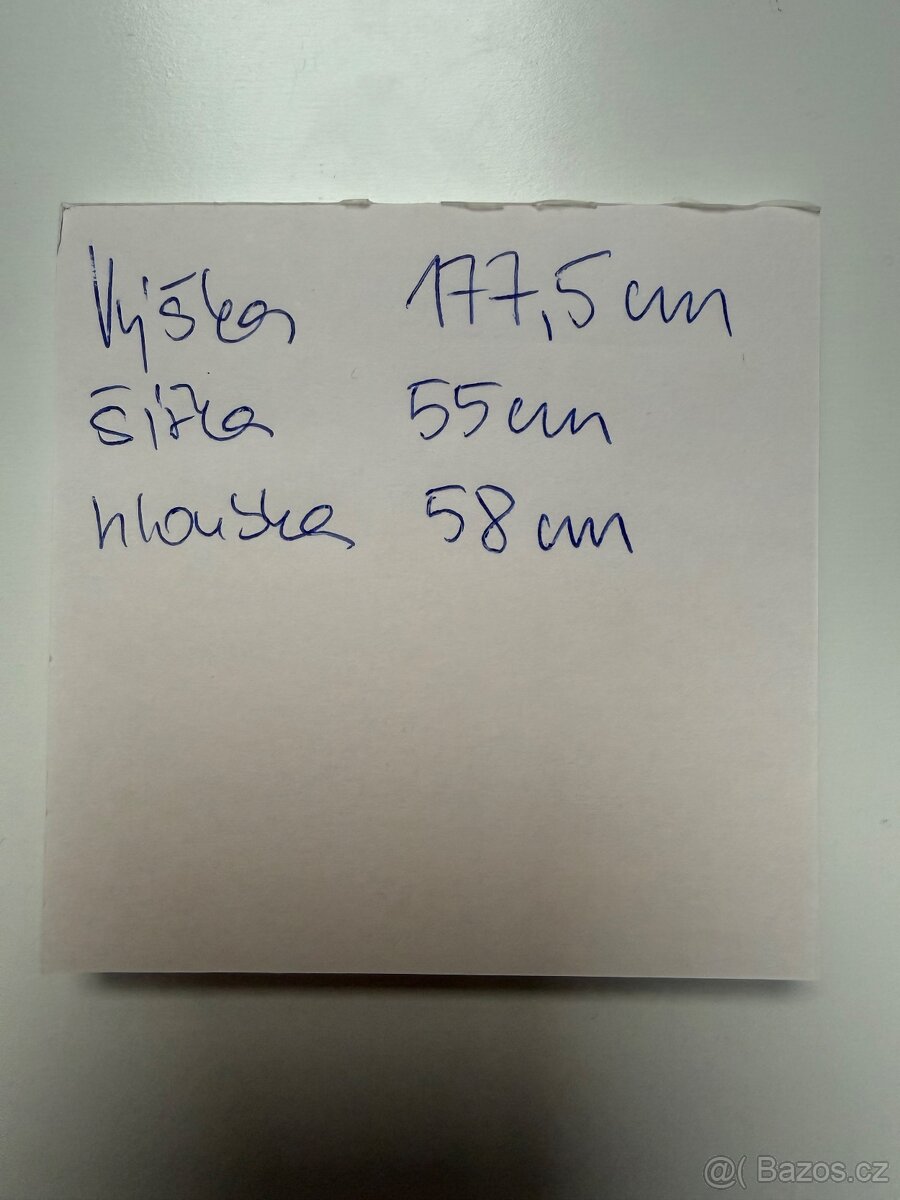 Výška 177,5 cm
šířka 55 cm
hloubka 58 cm
@( Bazos.cz